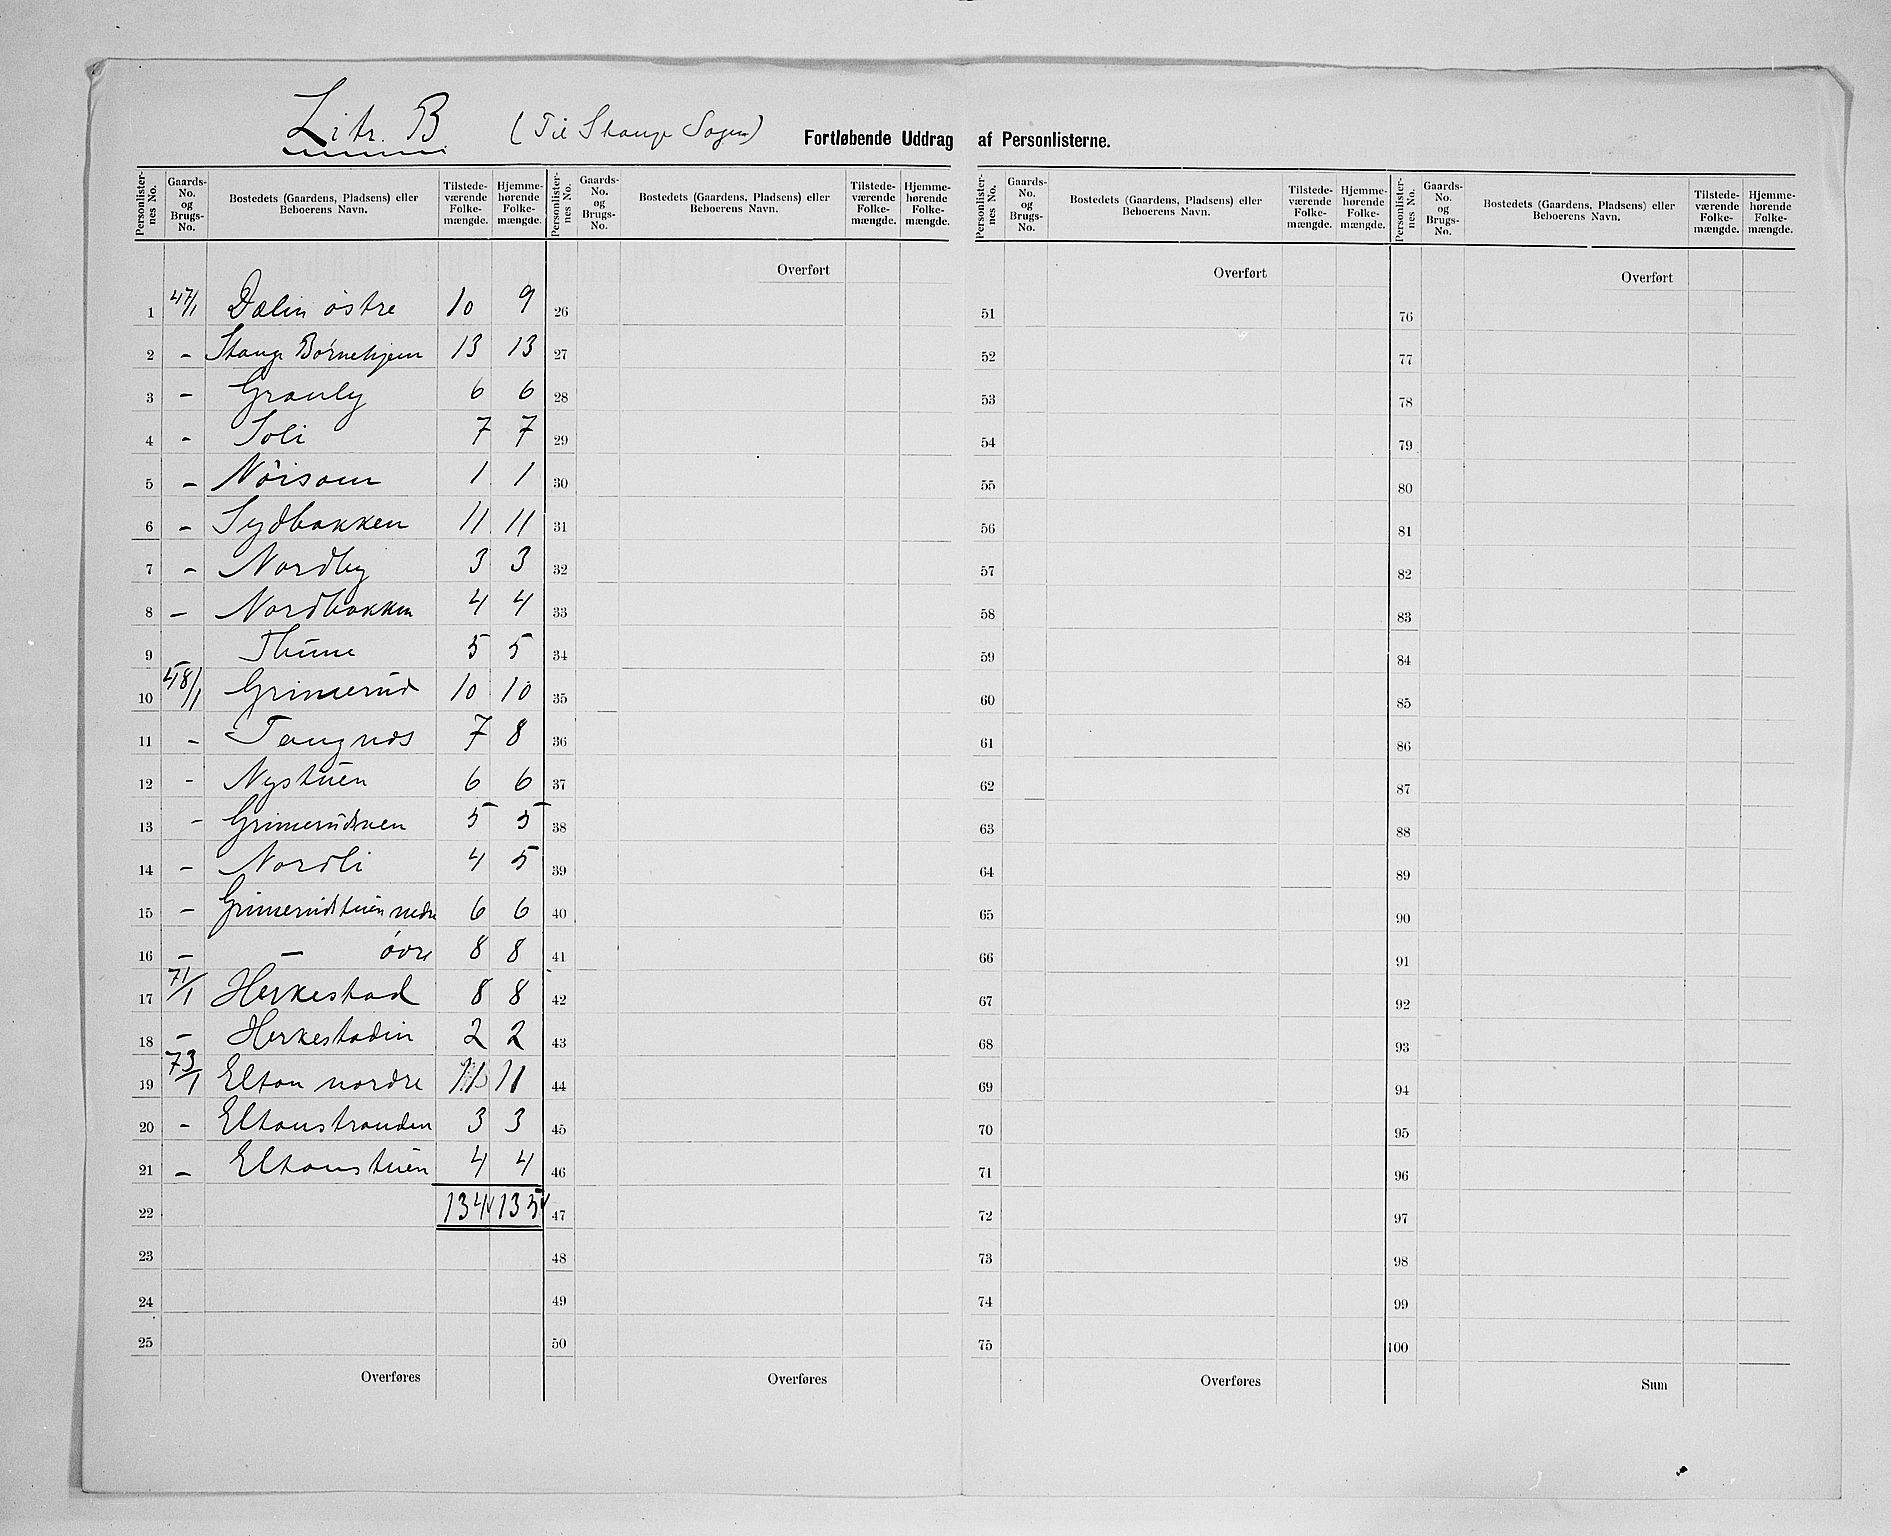 Litr. B (Til Stange Sogn) Fortløbende Uddrag af Personlisterne.
Personlisternes No. Gaards-No. og Brugs-No. Bostedets (Gaardens, Pladsens) eller Beboerens Navn. Tilstedeværende Folkemængde. Hjemmehørende Folkemængde. Personlisternes No. Gaards-No. og Brugs-No. Bostedets (Gaardens, Pladsens) eller Beboerens Navn. Tilstedeværende Folkemængde. Hjemmehørende Folkemængde. Personlisternes No. Gaards-No. og Brugs-No. Bostedets (Gaardens, Pladsens) eller Beboerens Navn. Tilstedeværende Folkemængde. Hjemmehørende Folkemængde. Personlisternes No. Gaards-No. og Brugs-No. Bostedets (Gaardens, Pladsens) eller Beboerens Navn. Tilstedeværende Folkemængde. Hjemmehørende Folkemængde.
Overført Overført Overført
1 47/1 Dælin østre 10 9 26 51 76
2 - Stange Børnehjem 13 13 27 52 77
3 - Granly 6 6 28 53 78
4 - Soli 7 7 29 54 79
5 - Nöisom 1 1 30 55 80
6 - Sydbakken 11 11 31 56 81
7 - Nordby 3 3 32 57 82
8 - Nordbakken 4 4 33 58 83
9 - Thune 5 5 34 59 84
10 48/1 Grimerud 10 10 35 60 85
11 - Tangnæs 7 8 36 61 86
12 - Nystuen 6 6 37 62 87
13 - Grimerudsveen 5 5 38 63 88
14 - Nordli 4 5 39 64 89
15 - Grimerudstuen nedre 6 6 40 65 90
16 - — øvre 8 8 41 66 91
17 71/1 Herkestad 8 8 42 67 92
18 - Herkestadin 2 2 43 68 93
19 73/1 Elton nordre 11 11 44 69 94
20 - Eltonstranden 3 3 45 70 95
21 - Eltonstuen 4 4 46 71 96
22 134 135 47 72 97
23 48 73 98
24 49 74 99
25 50 75 100
Overføres Overføres Overføres Sum